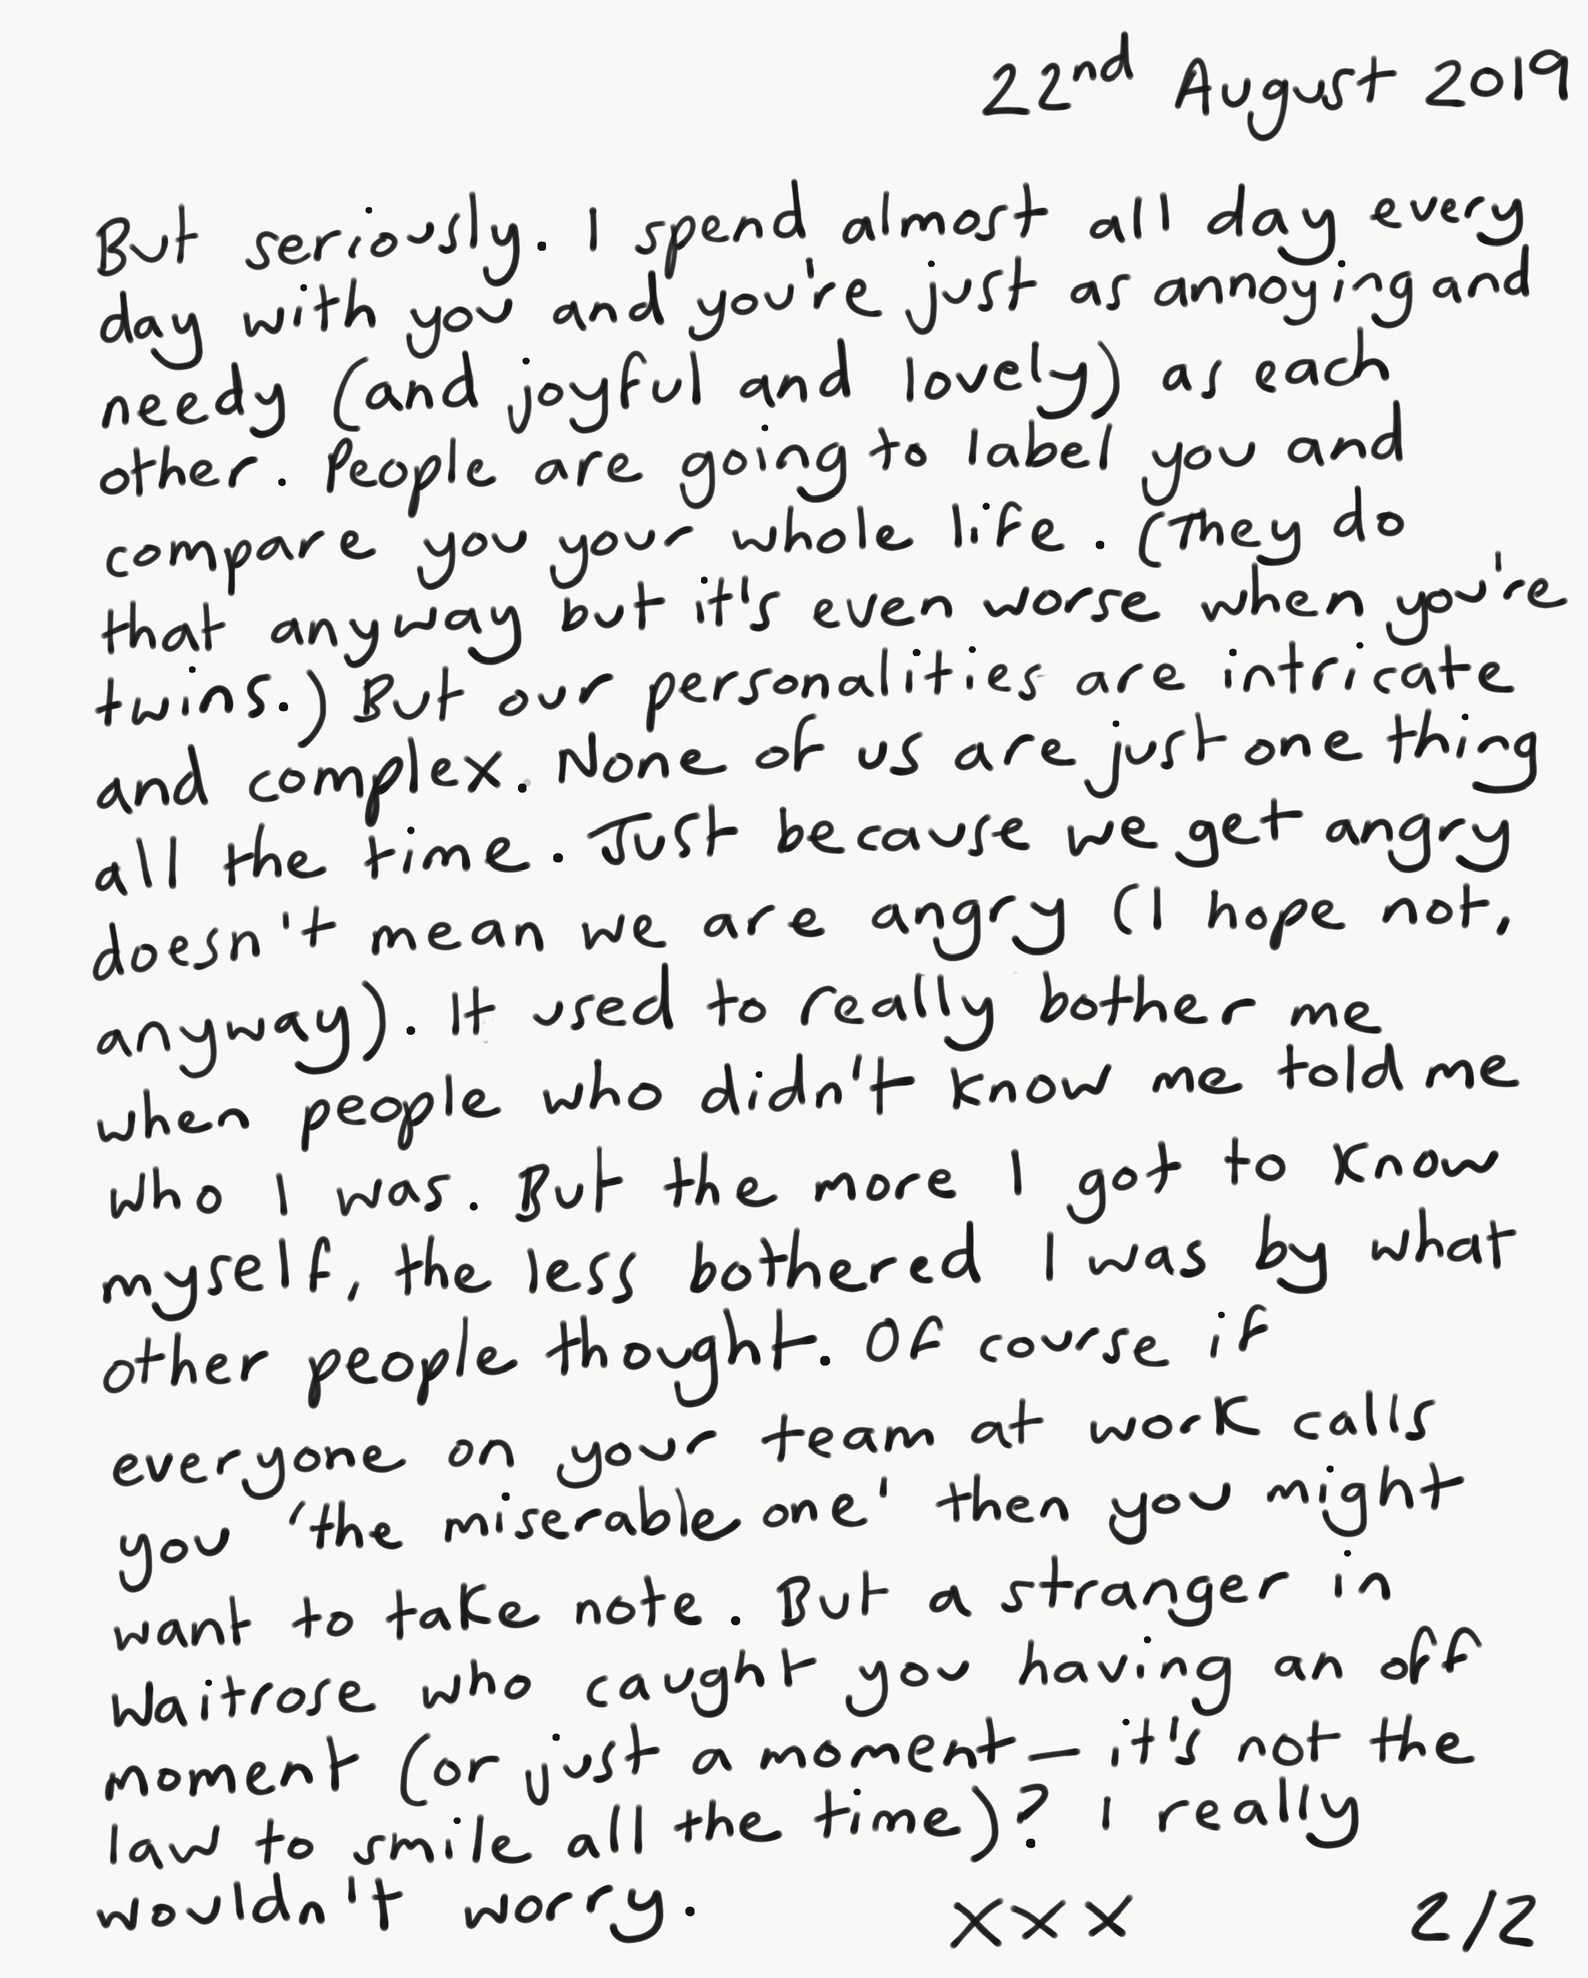 22nd August 2019
But seriously. I spend almost all day every
day with you and you're just as annoying and
needy (and joyful and lovely) as each
other. People are going to label you and
compare you your whole life. (They do
that anyway but it's even worse when you're
twins.) But our personalities are intricate
and complex. None of us are just one thing
all the time. Just because we get angry
doesn't mean we are angry (I hope not,
anyway). It used to really bother me
when people who didn't know me told me
who I was. But the more I got to know
myself, the less bothered I was by what
other people thought. Of course if
everyone on your team at work calls
you 'the miserable one' then you might
want to take note. But a stranger in
Waitrose who caught you having an off
moment (or just a moment – it's not the
law to smile all the time)? I really
wouldn't worry. xxx 2/2